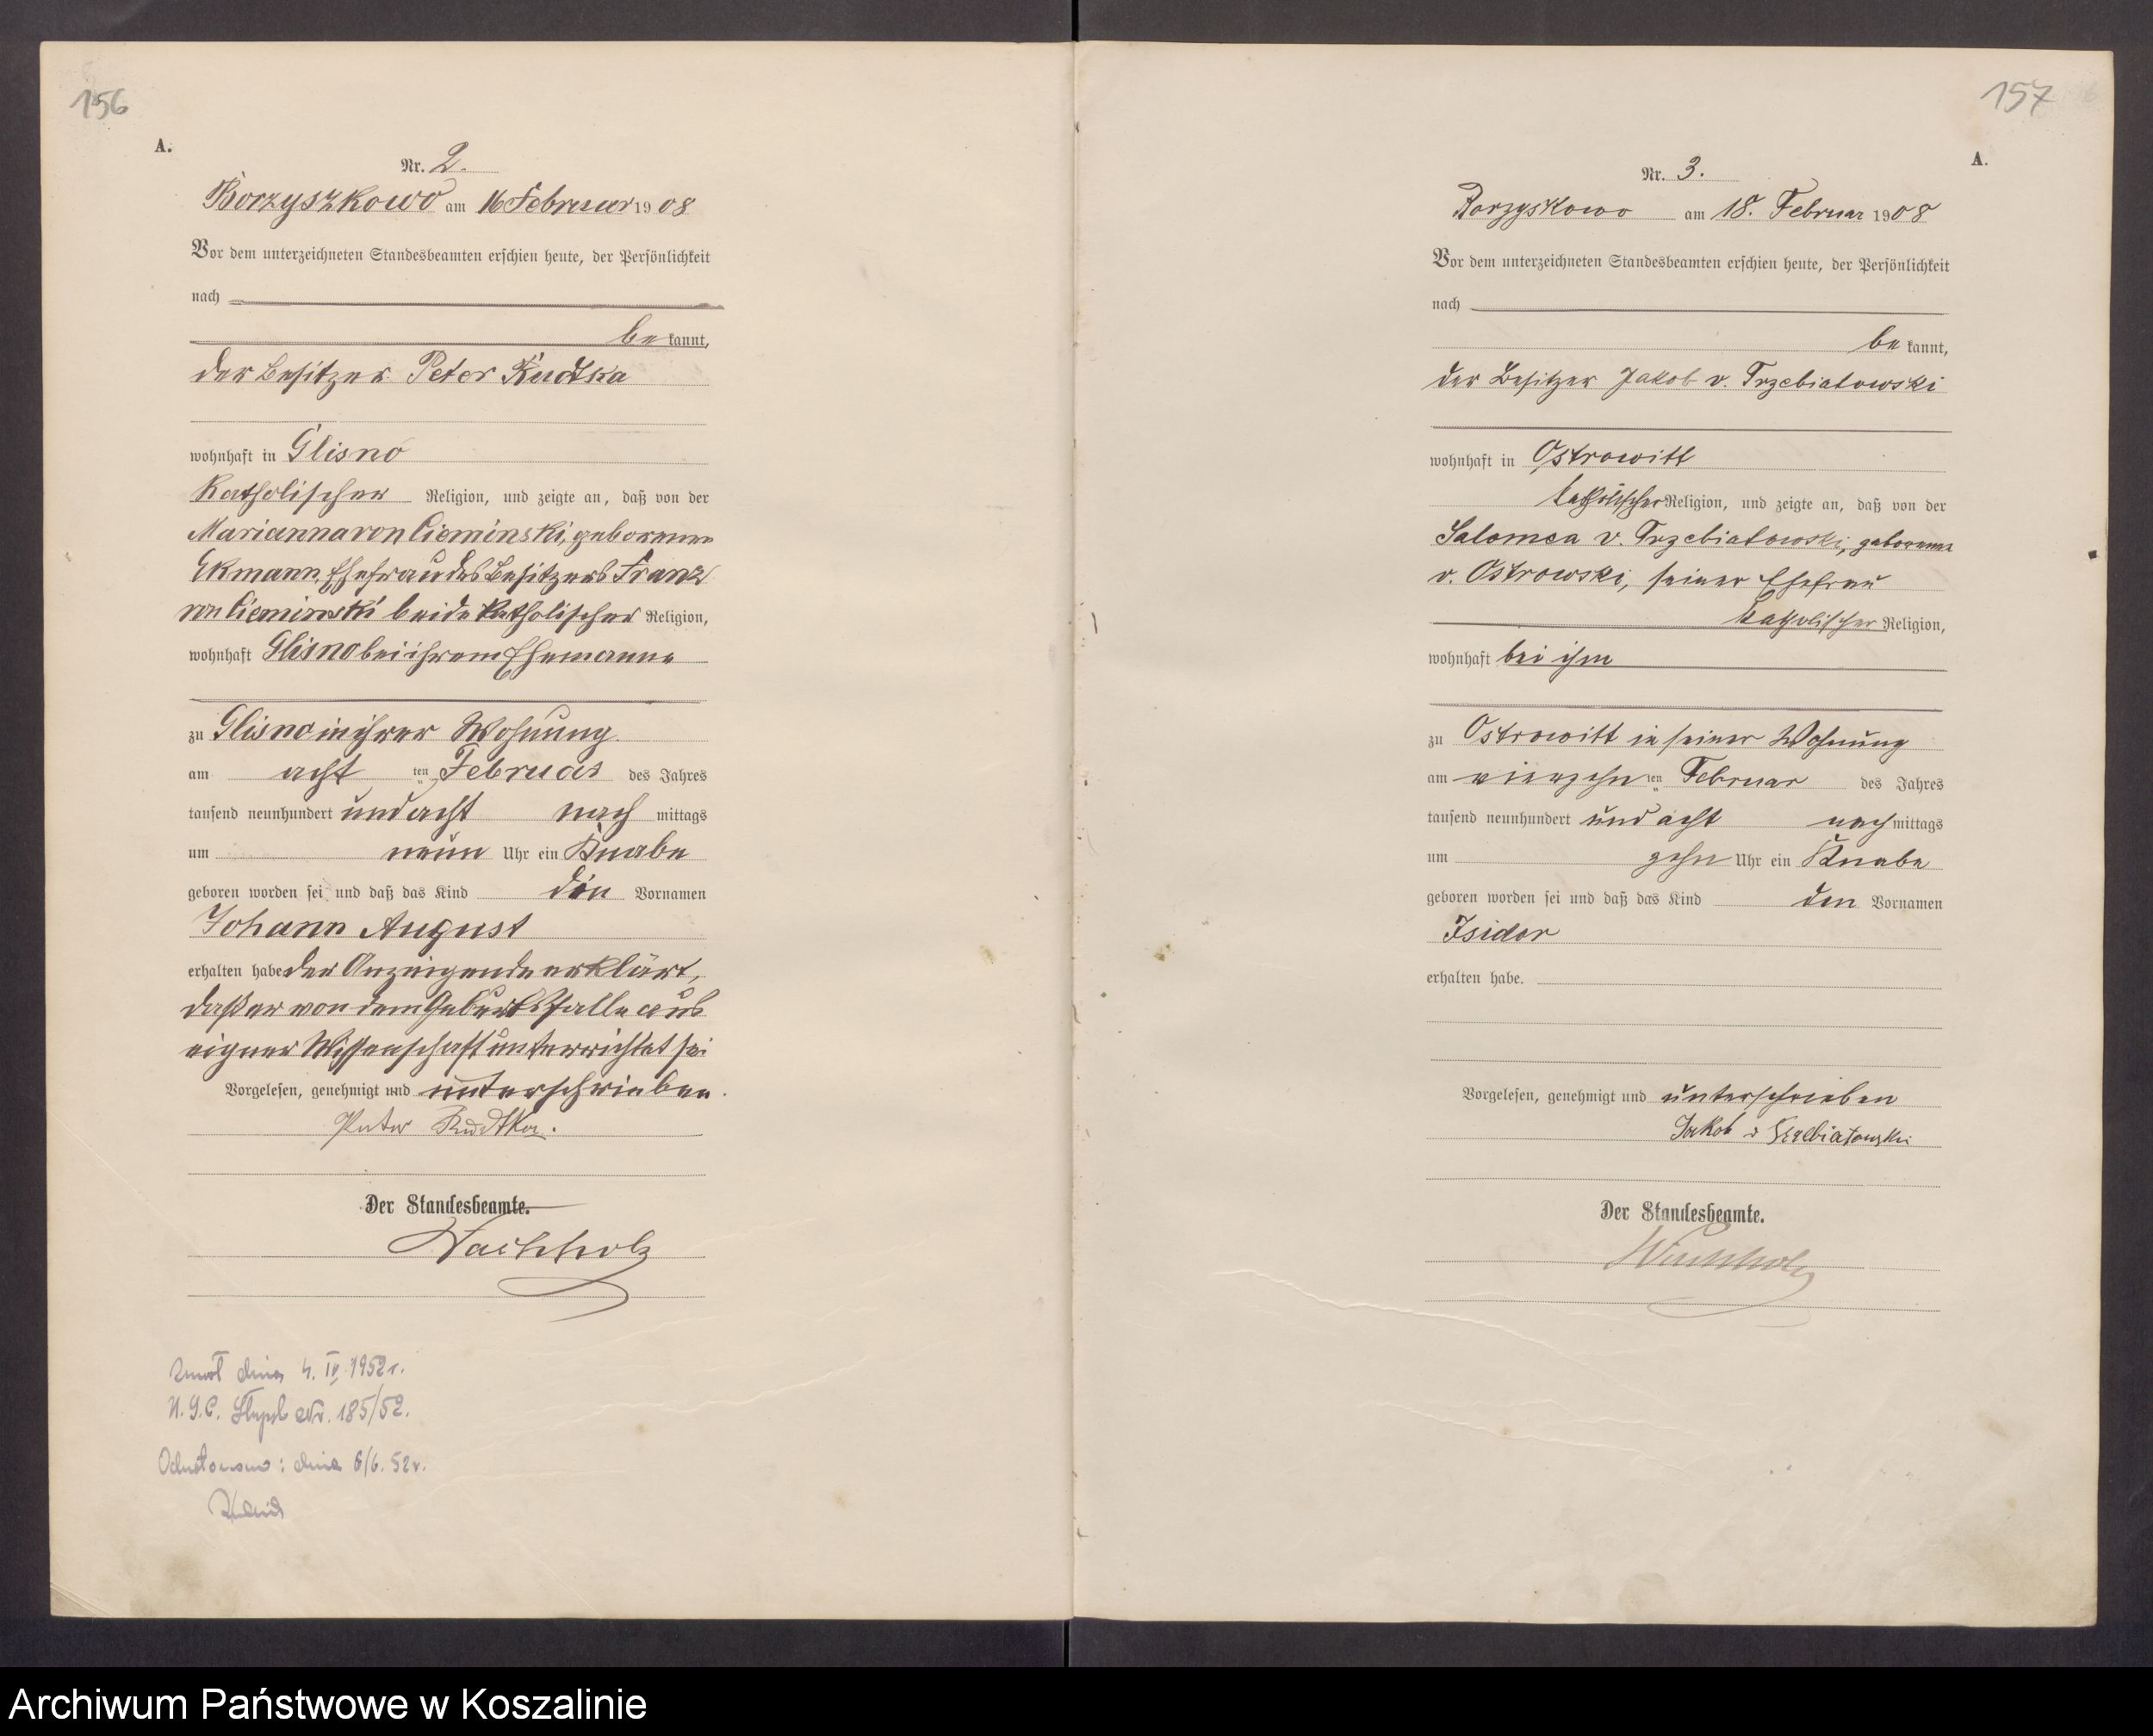 156
A.
Nr. 2.
Borzyszkowo am 16 Februar 1908
Vor dem unterzeichneten Standesbeamten erschien heute, der Persönlichkeit
nach
be kannt,
der Besitzer Peter Rudtka
wohnhaft in Glisno
Katholischer Religion, und zeigte an, daß von der
Marianna von Cieminski, geborenen
Ekmann, Ehefrau des Besitzers Franz
von Cieminski beide Katholischer Religion,
wohnhaft Glisno bei ihrem Ehemanne
zu Glisno in ihrer Wohnung
am acht ten Februar des Jahres
tausend neunhundert und acht nach mittags
um neun Uhr ein Knabe
geboren worden sei und daß das Kind den Vornamen
Johann August
erhalten habe der Anzeigende erklärt,
daß er von dem Geburtsfalle aus
eigner Wissenschaft unterrichtet sei
Vorgelesen, genehmigt und unterschrieben.
Peter Rudtka.
Der Standesbeamte.
Wachholz
Zmarł dnia 4. IV 1952 r.
U.S.C. Słupsk Nr. 185/52.
dnia 6/6. 52 r.
157
A.
Nr. 3.
Borzyskowo am 18. Februar 1908
Vor dem unterzeichneten Standesbeamten erschien heute, der Persönlichkeit
nach
be kannt,
der Besitzer Jakob v. Trzebiatowski
wohnhaft in Ostrowitt
katholischer Religion, und zeigte an, daß von der
Salomea v. Trzebiatowski, geborenen
v. Ostrowski, seiner Ehefrau
katholischer Religion,
wohnhaft bei ihm
zu Ostrowitt in seiner Wohnung
am vierzehn ten Februar des Jahres
tausend neunhundert und acht nach mittags
um zehn Uhr ein Knabe
geboren worden sei und daß das Kind den Vornamen
Isidor
erhalten habe.
Vorgelesen, genehmigt und unterschrieben
Jakob v Trzebiatowski
Der Standesbeamte.
Wachholz
Archiwum Państwowe w Koszalinie